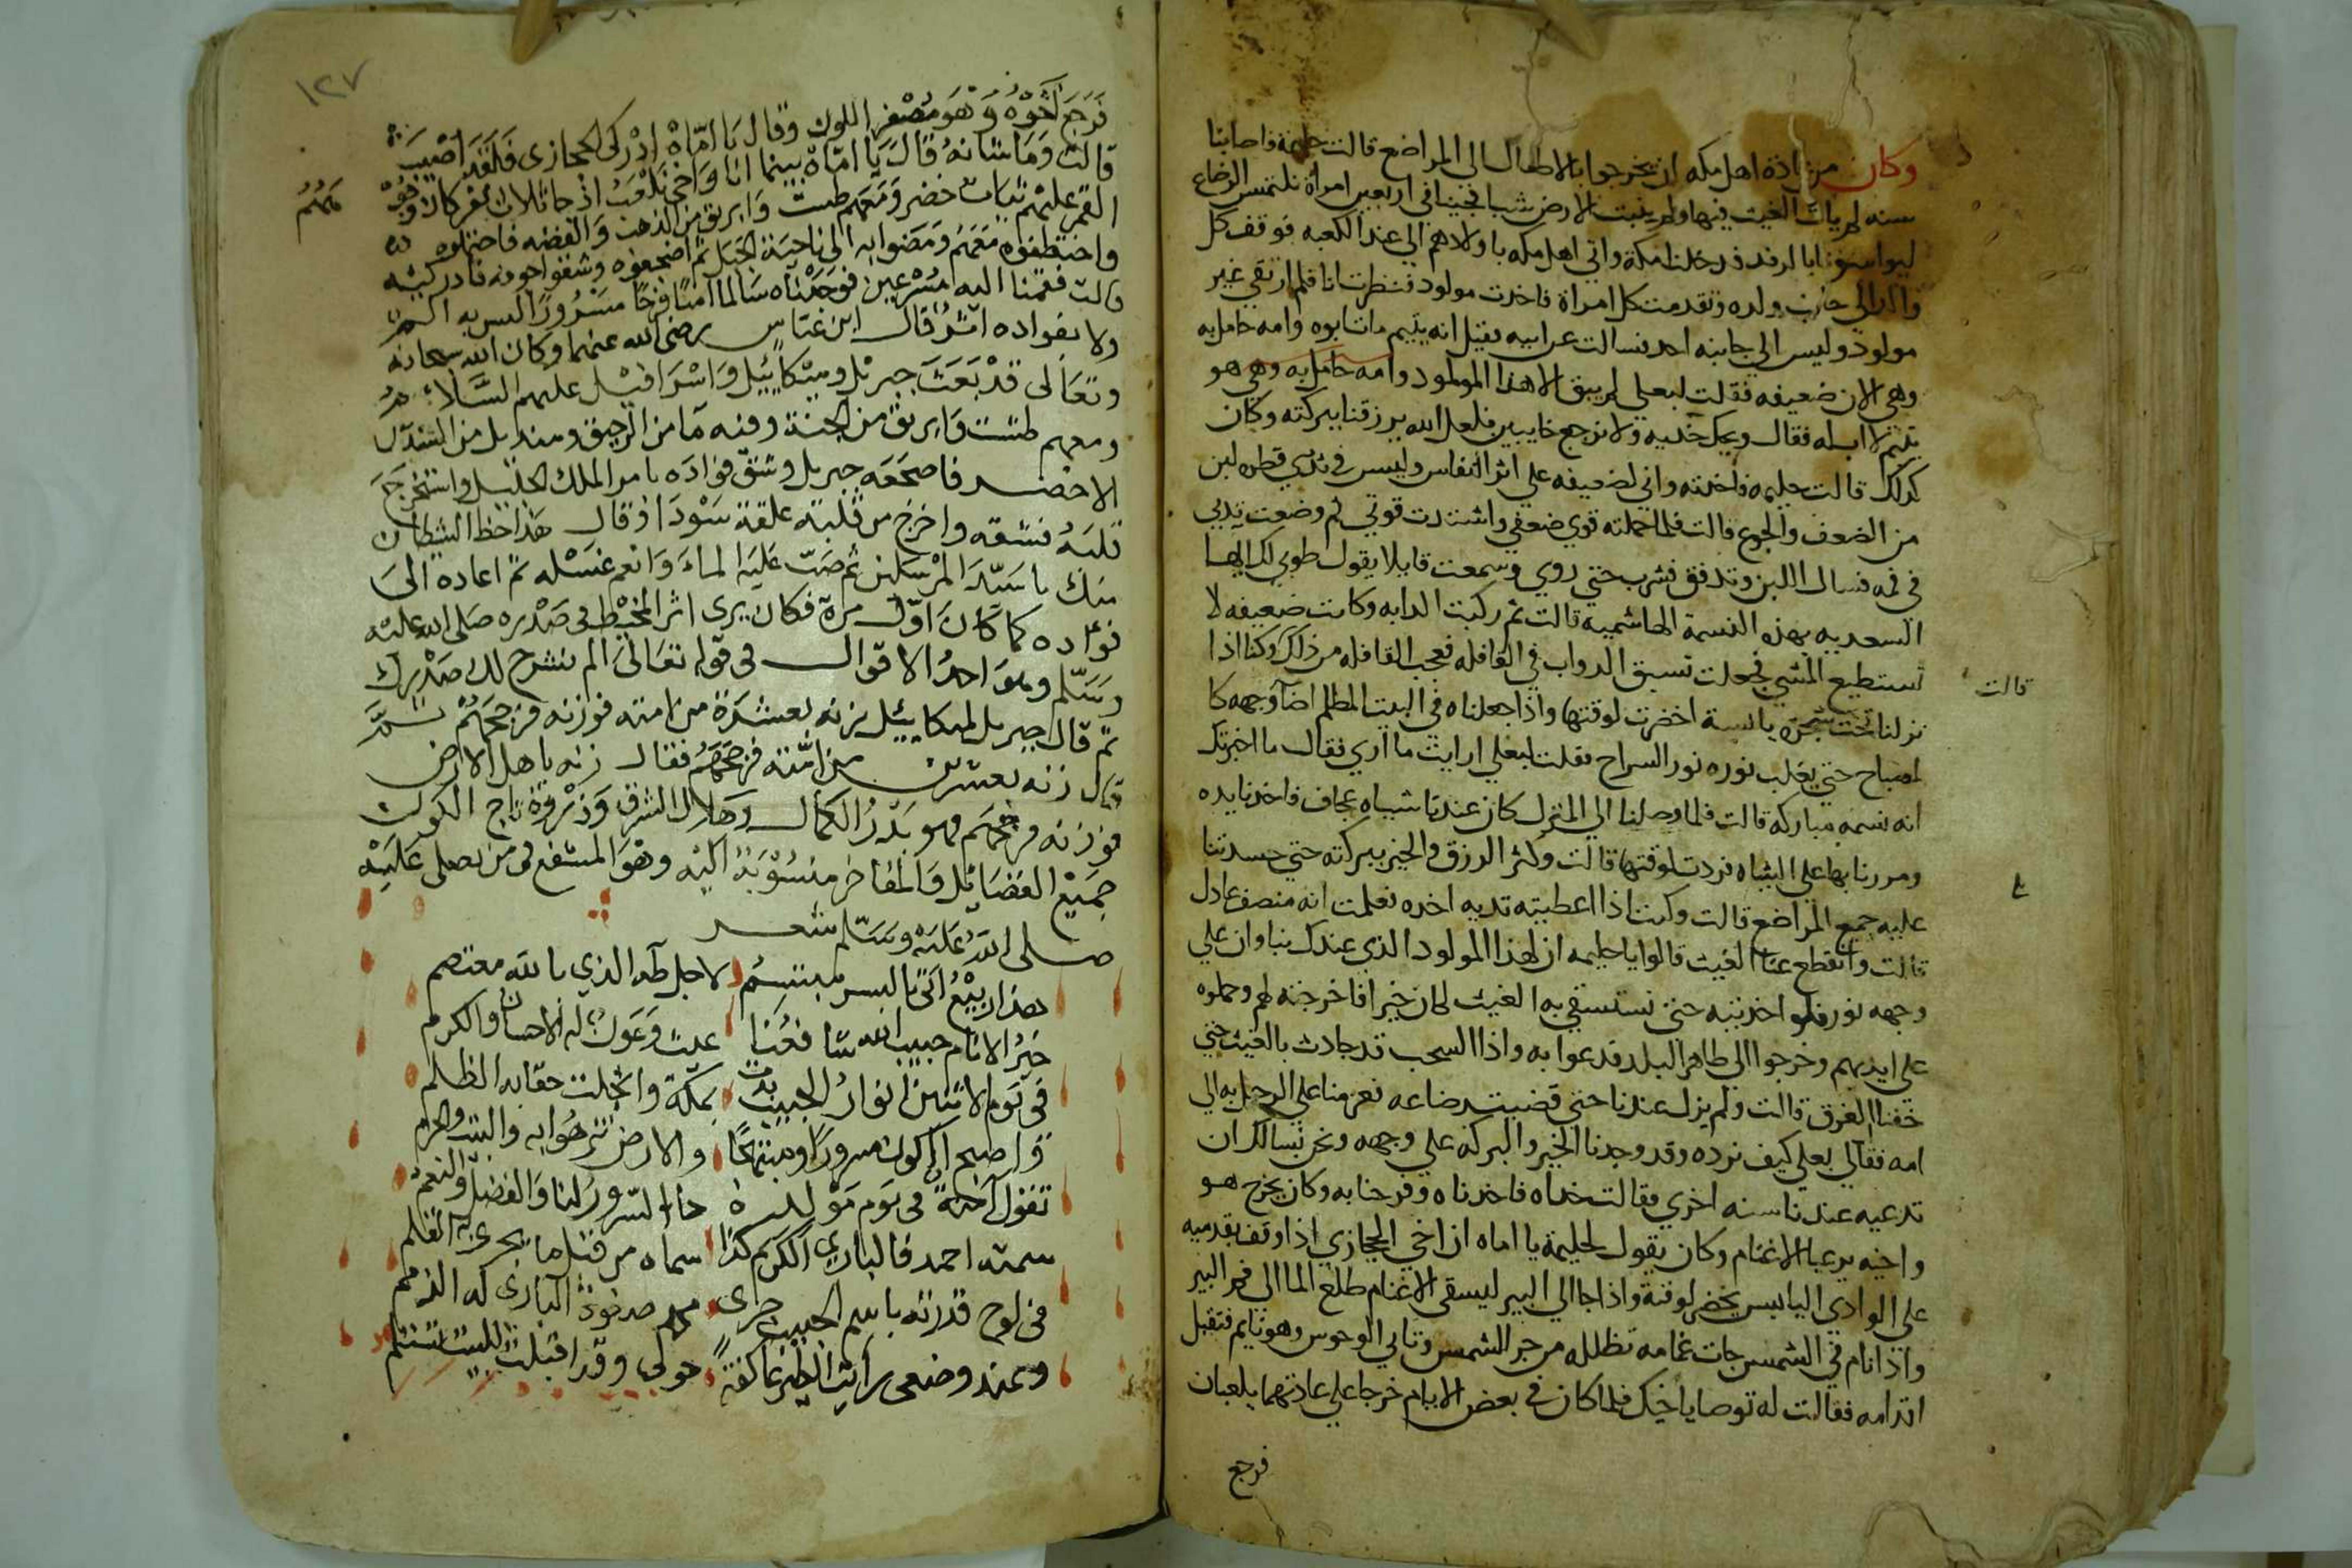 وكان من عادة اهل مكه ان يخرجوا بالاطفال الى المراضع قالت حليمة فاصابنا
سنه لم يات الغيث فيها ولم ينبت الارض شيا فجينا في اربعين امراة نلتمس الرضاع
فدخلنا مكة واتي اهل مكه باولادهم الي عند الكعبه فوقف كل
والد الي جانب ولده وتقدمت كل امراة فاخذت مولود فنظرت انا فلم ارتقي غير
مولود وليس الي جانبه احد فسالت عن ابيه فقيل انه يتيم مات ابوه وامه حامل به
وهي الان ضعيفه فقلت لبعلي لم يبق الا هذا المولود وامه حامل به وهي هو
يتيم لا اب له فقال ويحك خذيه ولا نرجع خايبين فلعل الله يرزقنا ببركته وكان
كذلك قالت حليمه فاخذته واني لضعيفه علي اثر النفاس وليس في ثديي قطره لبن
من الضعف والجوع قالت فلما حملته قوي ضعفي واشتدت قوتي ثم وضعت ثديي
في فمه فسال اللبن وتدفق فشرب حتي روي وسمعت قايلا يقول طوبي لك ايها
السعديه بهذه النسمة الهاشميه قالت ثم ركبت الدابه وكانت ضعيفه لا
تستطيع المشي فجعلت تسبق الدواب في القافله فعجب القافله من ذلك وكنا اذا
قالت
نزلنا تحت شجرة يابسة اخضرت لوقتها واذا جعلناه في البيت المظلم اضا وجهه كا
لمصباح حتي يغلب نوره نور السراج فقلت لبعلي ارايت ما اري فقال ما اخبرتك
انه نسمه مباركه قالت فلما وصلنا الي المنزل كان عندنا شياه عجاف فاخذنا يده
ومررنا بها علي الشياه فردت لوقتها قالت وكثر الرزق والخير ببركته حتي حسدتنا
عليه جمع المراضع قالت وكنت اذا اعطيته ثديه اخده فعلمت انه منصف عادل
قالت وانقطع عنا الغيث قالوا يا حليمه ان لهذا المولود الذي عندك نبا وان علي
وجهه نور فلو اخذتيه حتي نستسقي به الغيث لكان خيرا فاخرجته لهم وحملوه
علي ايديهم وخرجوا الي ظاهر البلد فدعوا به واذا السحب قد جادت بالغيث حتي
خفنا الغرق قالت ولم يزل عندنا حتي قضيت رضاعه فعزمنا علي الرحيل به الي
امه فقال لي بعلي كيف نرده وقد وجدنا الخير والبركه علي وجهه ونحن نسالك ان
تدعيه عندنا سنه اخري فقالت خداه فاخدناه وفرحنا به وكان يخرج هو
واخيه يرعيا الاغنام وكان يقول لحليمة يا اماه ان اخي الحجازي اذا وقف بقدميه
علي الوادي اليابس يخضر لوقته واذا جا الي البير ليسقي الاغنام طلع الما الي فم البير
واذا نام في الشمس جات غمامه تظلله من حر الشمس وتاتي الوحوش وهو نايم فتقبل
اقدامه فقالت له توصا يا خيك فلما كان في بعض الايام خرجا علي عادتهما يلعبان
فرجع
١٢٧
فرجع اخوه وهو مصفر اللون وقال يا اماه ادركي الحجازى فلقد اصيب
قالت وما شانه قال يا اماه بينما انا واخي نلعب اذ جا ثلاث نفر كان وجوههم
القمر عليهم ثياب خضر ومعهم طست وابريق من الذهب والفضه فاحتملوه
واختطفوه معهم ومضوا به الى ناحية الجبل ثم اضجعوه وشقوا جوفه فادركيه
قالت فقمنا اليه مسرعين فوجدناه سالما آمنا فرحا مسرورا ليس به الم
ولا بفواده اثر قال ابن عباس رضى الله عنهما وكان الله سبحانه
وتعالى قد بعث جبريل وميكائيل واسرافيل عليهم السلام
ومعهم طست وابريق من الجنة وفيه ما من الرحيق ومنديل من السندس
الاخضر فاضجعه جبريل وشق فواده بامر الملك الجليل واستخرج
قلبه فشقه واخرج من قلبه علقة سودا وقال هذا حظ الشيطان
منك يا سيد المرسلين ثم صب عليه الماء وانعم غسله ثم اعاده الى
فواده كما كان اول مرة فكان يرى اثر المخيط في صدره صلى الله عليه
وسلم وهو احد الاقوال في قوله تعالى الم نشرح لك صدرك
ثم قال جبريل لميكائيل زنه بعشرة من امته فوزنه فرجحهم
قال زنه بعشرين من امته فرجحهم فقال زنه باهل الارض
فوزنه فرجحهم فهو بدر الكمال وهلال الشرف وذروة تاج الكون
جميع الفضائل والمفاخر منسوبة اليه وهو المشفع في من يصلى عليه
صلى الله عليه وسلم شعر
هذا ربيع اتى باليسر مبتسم لاجل طه الذي بالله معتصم
خير الانام حبيب الله شافعنا غيث وعون له الاحسان والكرم
في يوم الاثنين انوار الحبيب بدت بمكة وانجلت حقا به الظلم
واصبح الكون مسرورا ومبتهجا والارض تزهوا به والبيت والحرم
تقول آمنة في يوم مولده جاء السرور لنا والفضل والنعم
سمته احمد فالباري الكريم كذا سماه من قبل ما يجري به القلم
في لوح قدرته باسم الحبيب جرى محمد صفوة الباري له الذمم
وعند وضعى رايت الطير عاكفة حولي وقد اقبلت للبيت تستلم